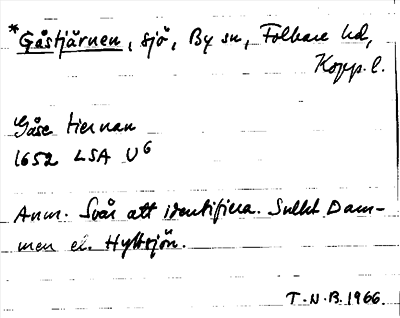 *Gåstjärnen, sjö, By sn, Folkare hd,
Kopp. l.
Gåse tiernan
1652 LSA U6
Anm. Svår att identifiera. Snllet Dam-
men el. Hyttsjön.
T.N.B. 1966.